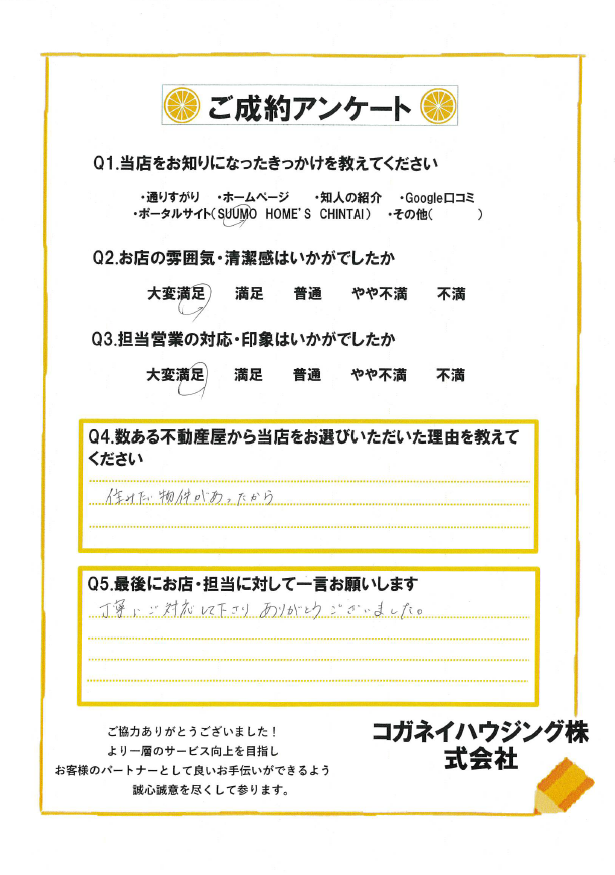 ご成約アンケート
Q1.当店をお知りになったきっかけを教えてください
・通りすがり ・ホームページ ・知人の紹介 ・Google口コミ
・ポータルサイト(SUUMO HOME'S CHINTAI) ・その他( )
Q2.お店の雰囲気・清潔感はいかがでしたか
大変満足 満足 普通 やや不満 不満
Q3.担当営業の対応・印象はいかがでしたか
大変満足 満足 普通 やや不満 不満
Q4.数ある不動産屋から当店をお選びいただいた理由を教えて
ください
住みたい物件があったから
Q5.最後にお店・担当に対して一言お願いします
丁寧にご対応して下さりありがとうございました。
ご協力ありがとうございました！
より一層のサービス向上を目指し
お客様のパートナーとして良いお手伝いができるよう
誠心誠意を尽くして参ります。
コガネイハウジング株
式会社